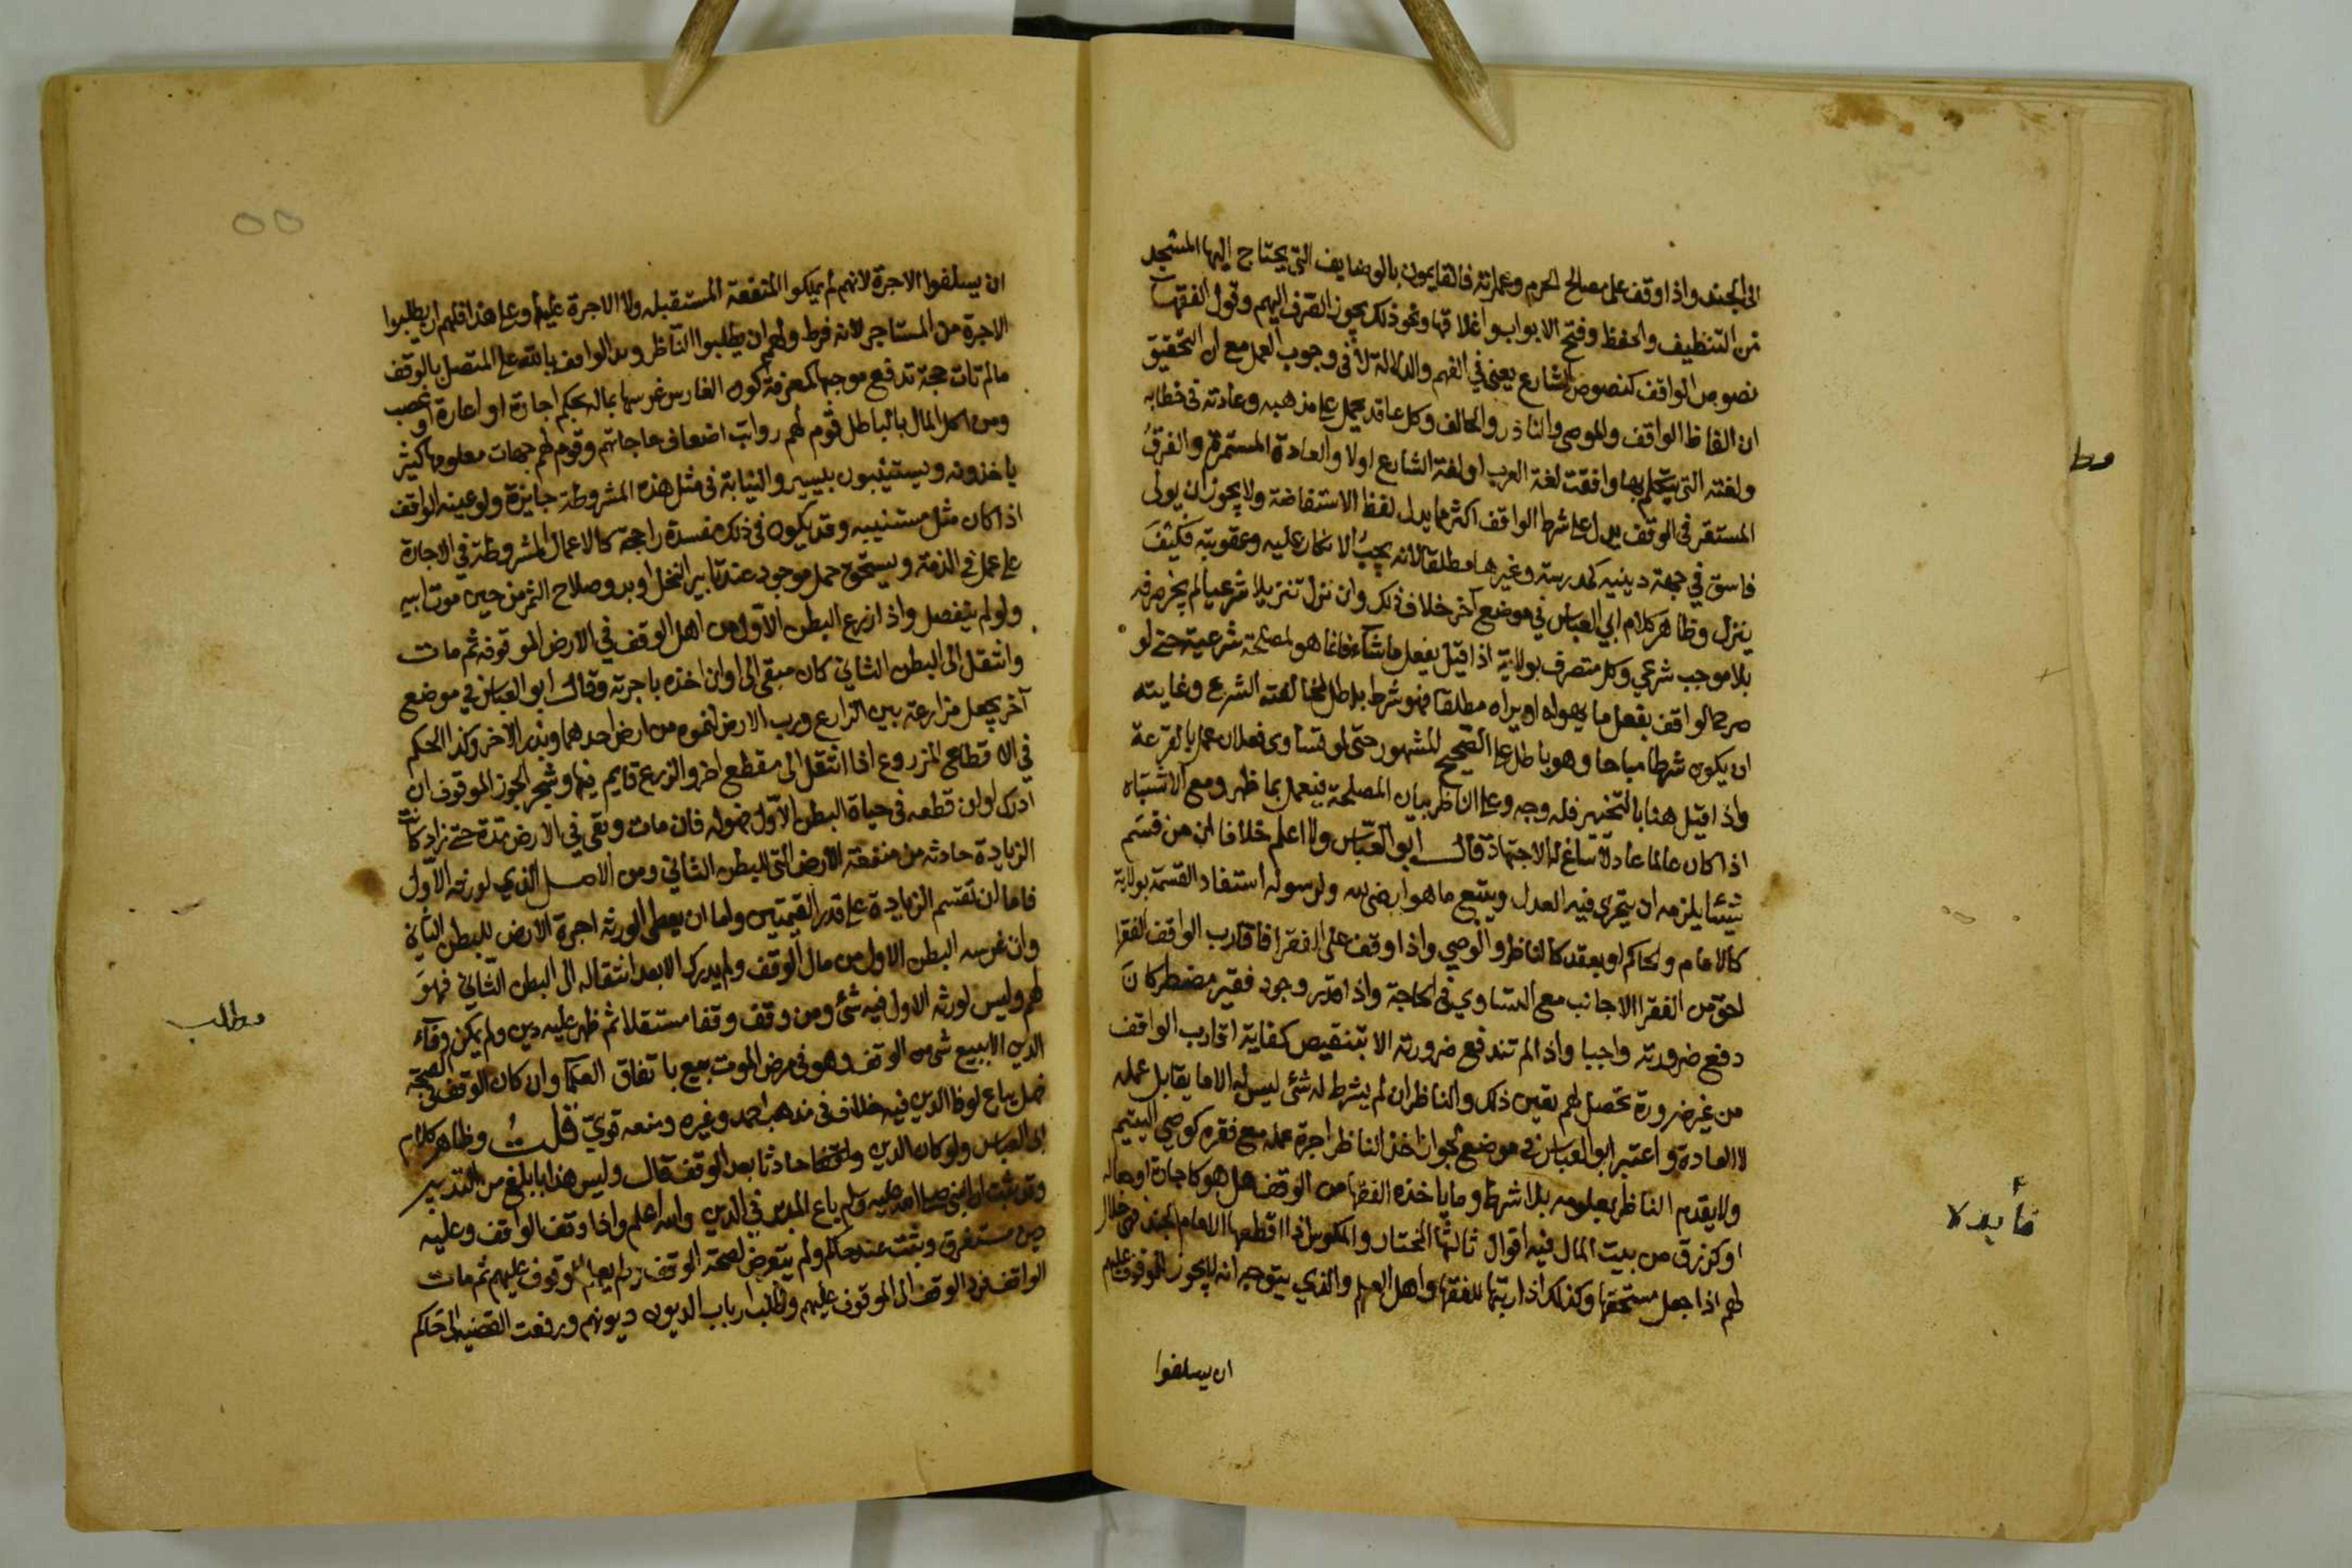 الى الجند واذا وقف على مصالح الحرم وعمارته فالقايمون بالوضايف التي يحتاج اليها المسجد
من التنظيف والحفظ وفتح الابواب واغلاقها ونحو ذلك يجوز الصرف اليهم وقول الفقهاء
نصوص الواقف كنصوص الشارع يعني في الفهم والدلالة لا في وجوب العمل مع ان التحقيق
ان الفاظ الواقف والموصي والناذر والحالف وكل عاقد يحمل على مذهبه وعادته في خطابه
ولغته التي يتكلم بها وافقت لغة العرب او لغة الشارع اولا والعادة المستمرة والعرف
المستقر في الوقف يدل على شرط الواقف اكثر مما يدل لفظ الاستفاضة ولا يجوز ان يولى
فاسق في جهة دينية كمدرسة وغيرها مطلقا لانه يجب الانكار عليه وعقوبته فكيف
ينزل وظاهر كلام ابي العباس في موضع آخر خلاف ذلك وان نزل تنزيلا شرعيا لم يجز صرفه
بلا موجب شرعي وكل متصرف بولاية اذا قيل يفعل ما شاء فانما هو لمصلحة شرعية حتى لو
صرح الواقف بفعل ما يهواه او يراه مطلقا فهو شرط باطل لمخالفته الشرع وغايته
ان يكون شرطا مباحا وهو باطل على الصحيح المشهور حتى لو تساوى فعلان عمل بالقرعة
واذا قيل هنا بالتخيير فله وجه وعلى الناظر بيان المصلحة فيعمل بما ظهر ومع الاشتباه
اذا كان عالما عادلا ساغ له الاجتهاد قال ابو العباس ولا اعلم خلافا ان من قسم
شيئا يلزمه ان يتحرى فيه العدل ويتبع ما هو ارضى لله ولرسوله استفاد القسمة بولاية
كالامام والحاكم او بعقد كالناظر والوصي واذا وقف على الفقرا فاقارب الواقف الفقرا
احق من الفقرا الاجانب مع التساوي في الحاجة واذا قدر وجود فقير مضطر كان
دفع ضرورته واجبا واذا لم تندفع ضرورته الا بتنقيص كفاية اقارب الواقف
من غير ضرورة تحصل لهم تعين ذلك والناظر ان لم يشرط له شئ ليس له الا ما يقابل عمله
لا العادة واعتبر ابو العباس في موضع جواز اخذ الناظر اجرة عمله مع فقره كوصي اليتيم
ولا يقدم الناظر بمعلومه بلا شرط وما ياخذه الفقها من الوقف هل هو كاجارة او جعالة
او كرزق من بيت المال فيه اقوال ثالثها المختار والمكوس اذا اقطعها الامام الجند فهي حلال
لهم اذا جعل مستحقها وكذلك اذا رتبها للفقها واهل العلم والذي يتوجه انه لا يجوز للموقوف عليهم
ان يسلفوا
مط
فأيدة
٥٥
ان يسلفوا الاجرة لانهم لم يملكوا المنفعة المستقبله ولا الاجرة عليها وعلى هذا فلهم ان يطلبوا
الاجرة من المستاجر لانه فرط ولهم ان يطلبوا الناظر ويد الواقف بابقه على المتصل بالوقف
مالم تات حجة تدفع موجبها كمعرفة كون الغارس غرسها بماله بحكم اجارة او اعارة او غصب
ومن اكل المال بالباطل قوم لهم رواتب اضعاف حاجاتهم وقوم لهم جهات معلومها كثير
ياخذونه ويستنيبون بيسير والنيابة في مثل هذه المشروطة جايزة ولو عينه الواقف
اذا كان مثل مستنيبه وقد يكون في ذلك مفسدة راجحة كالاعمال المشروطة في الاجارة
على عمل في الذمة ويستحق حمل موجود عند تابير النخل او بدو صلاح الثمر من حين موت ابيه
ولو لم ينفصل واذا ازرع البطن الاول من اهل الوقف في الارض الموقوفه ثم مات
وانتقل الى البطن الثاني كان مبقى الى اوان اخذه باجرته وقال ابو العباس في موضع
آخر يجعل مزارعة بين الزارع ورب الارض لنموه من ارض احدهما وبذر الاخر وكذا الحكم
في الاقطاع المزروع اذا انتقل الى مقطع اخر والزرع قايم فيها وشجر الجوز الموقوف ان
ادرك اوان قطعه في حياة البطن الاول فهوله فان مات وبقي في الارض مدة حتى زاد كانت
الزيادة حادثه من منفعة الارض التي للبطن الثاني ومن الاصل الذي لورثه الاول
فاما ان تقسم الزيادة على قدر القيمتين واما ان يعطى الورثه اجرة الارض للبطن الثاني
وان غرسه البطن الاول من مال الوقف ولم يدرك الا بعد انتقاله الى البطن الثاني فهو
لهم وليس لورثه الاول فيه شئ ومن وقف وقفا مستقلا ثم ظهر عليه دين ولم يمكن وفآء
الدين الا ببيع شئ من الوقف وهو في مرض الموت بيع باتفاق العلما وان كان الوقف في الصحة
فهل يباع لوفا الدين فيه خلاف في مذهب احمد وغيره ومنعه قوي قلت وظاهر كلام
ابي العباس ولو كان الدين حادثا بعد الوقف قال وليس هذا بابلغ من التدبير
وقد ثبت ان النبي صلى الله عليه وسلم باع المدبر في الدين والله اعلم واذا وقف الواقف وعليه
دين مستغرق وثبت عند حاكم ولم يتعرض لصحة الوقف ولم يعلم الموقوف عليهم ثم مات
الواقف فرد الوقف الى الموقوف عليهم وطلب ارباب الديون ديونهم ورفعت القضيه الى حاكم
مطلب